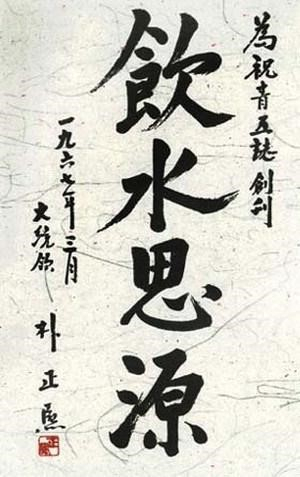 為祝青五誌創刊
飲水思源
一九六七年三月
大統領 朴正熙